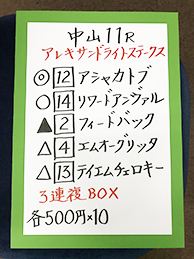 中山11R
アレキサンドライトステークス
◎12アシャカトブ
○14リワードアンヴァル
▲2フィードバック
△4エムオーグリッタ
△13テイエムチェロキー
3連複BOX
各500円×10